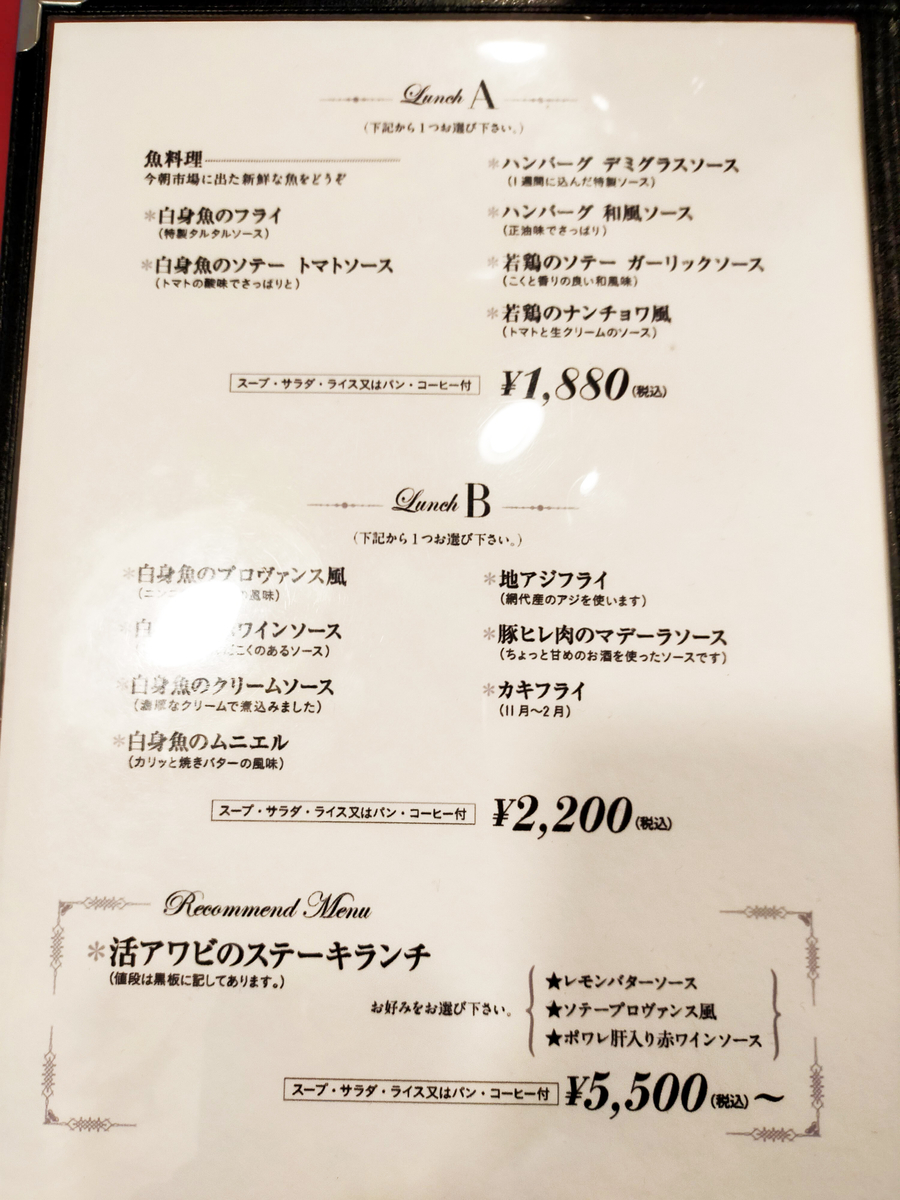 Lunch A
(下記から1つお選び下さい。)
魚料理
今朝市場に出た新鮮な魚をどうぞ
*白身魚のフライ
(特製タルタルソース)
*白身魚のソテー トマトソース
(トマトの酸味でさっぱりと)
*ハンバーグ デミグラスソース
(1週間に込んだ特製ソース)
*ハンバーグ 和風ソース
(正油味でさっぱり)
*若鶏のソテー ガーリックソース
(こくと香りの良い和風味)
*若鶏のナンチョワ風
(トマトと生クリームのソース)
スープ・サラダ・ライス又はパン・コーヒー付 ¥1,880(税込)
Lunch B
(下記から1つお選び下さい。)
*白身魚のプロヴァンス風
(ニンニ の風味)
*白 ワインソース
こくのあるソース)
*白身魚のクリームソース
(濃厚なクリームで煮込みました)
*白身魚のムニエル
(カリッと焼きバターの風味)
*地アジフライ
(網代産のアジを使います)
*豚ヒレ肉のマデーラソース
(ちょっと甘めのお酒を使ったソースです)
*カキフライ
(11月〜2月)
スープ・サラダ・ライス又はパン・コーヒー付 ¥2,200(税込)
Recommend Menu
*活アワビのステーキランチ
(値段は黒板に記してあります。)
お好みをお選び下さい。
★レモンバターソース
★ソテープロヴァンス風
★ポワレ肝入り赤ワインソース
スープ・サラダ・ライス又はパン・コーヒー付 ¥5,500(税込)〜